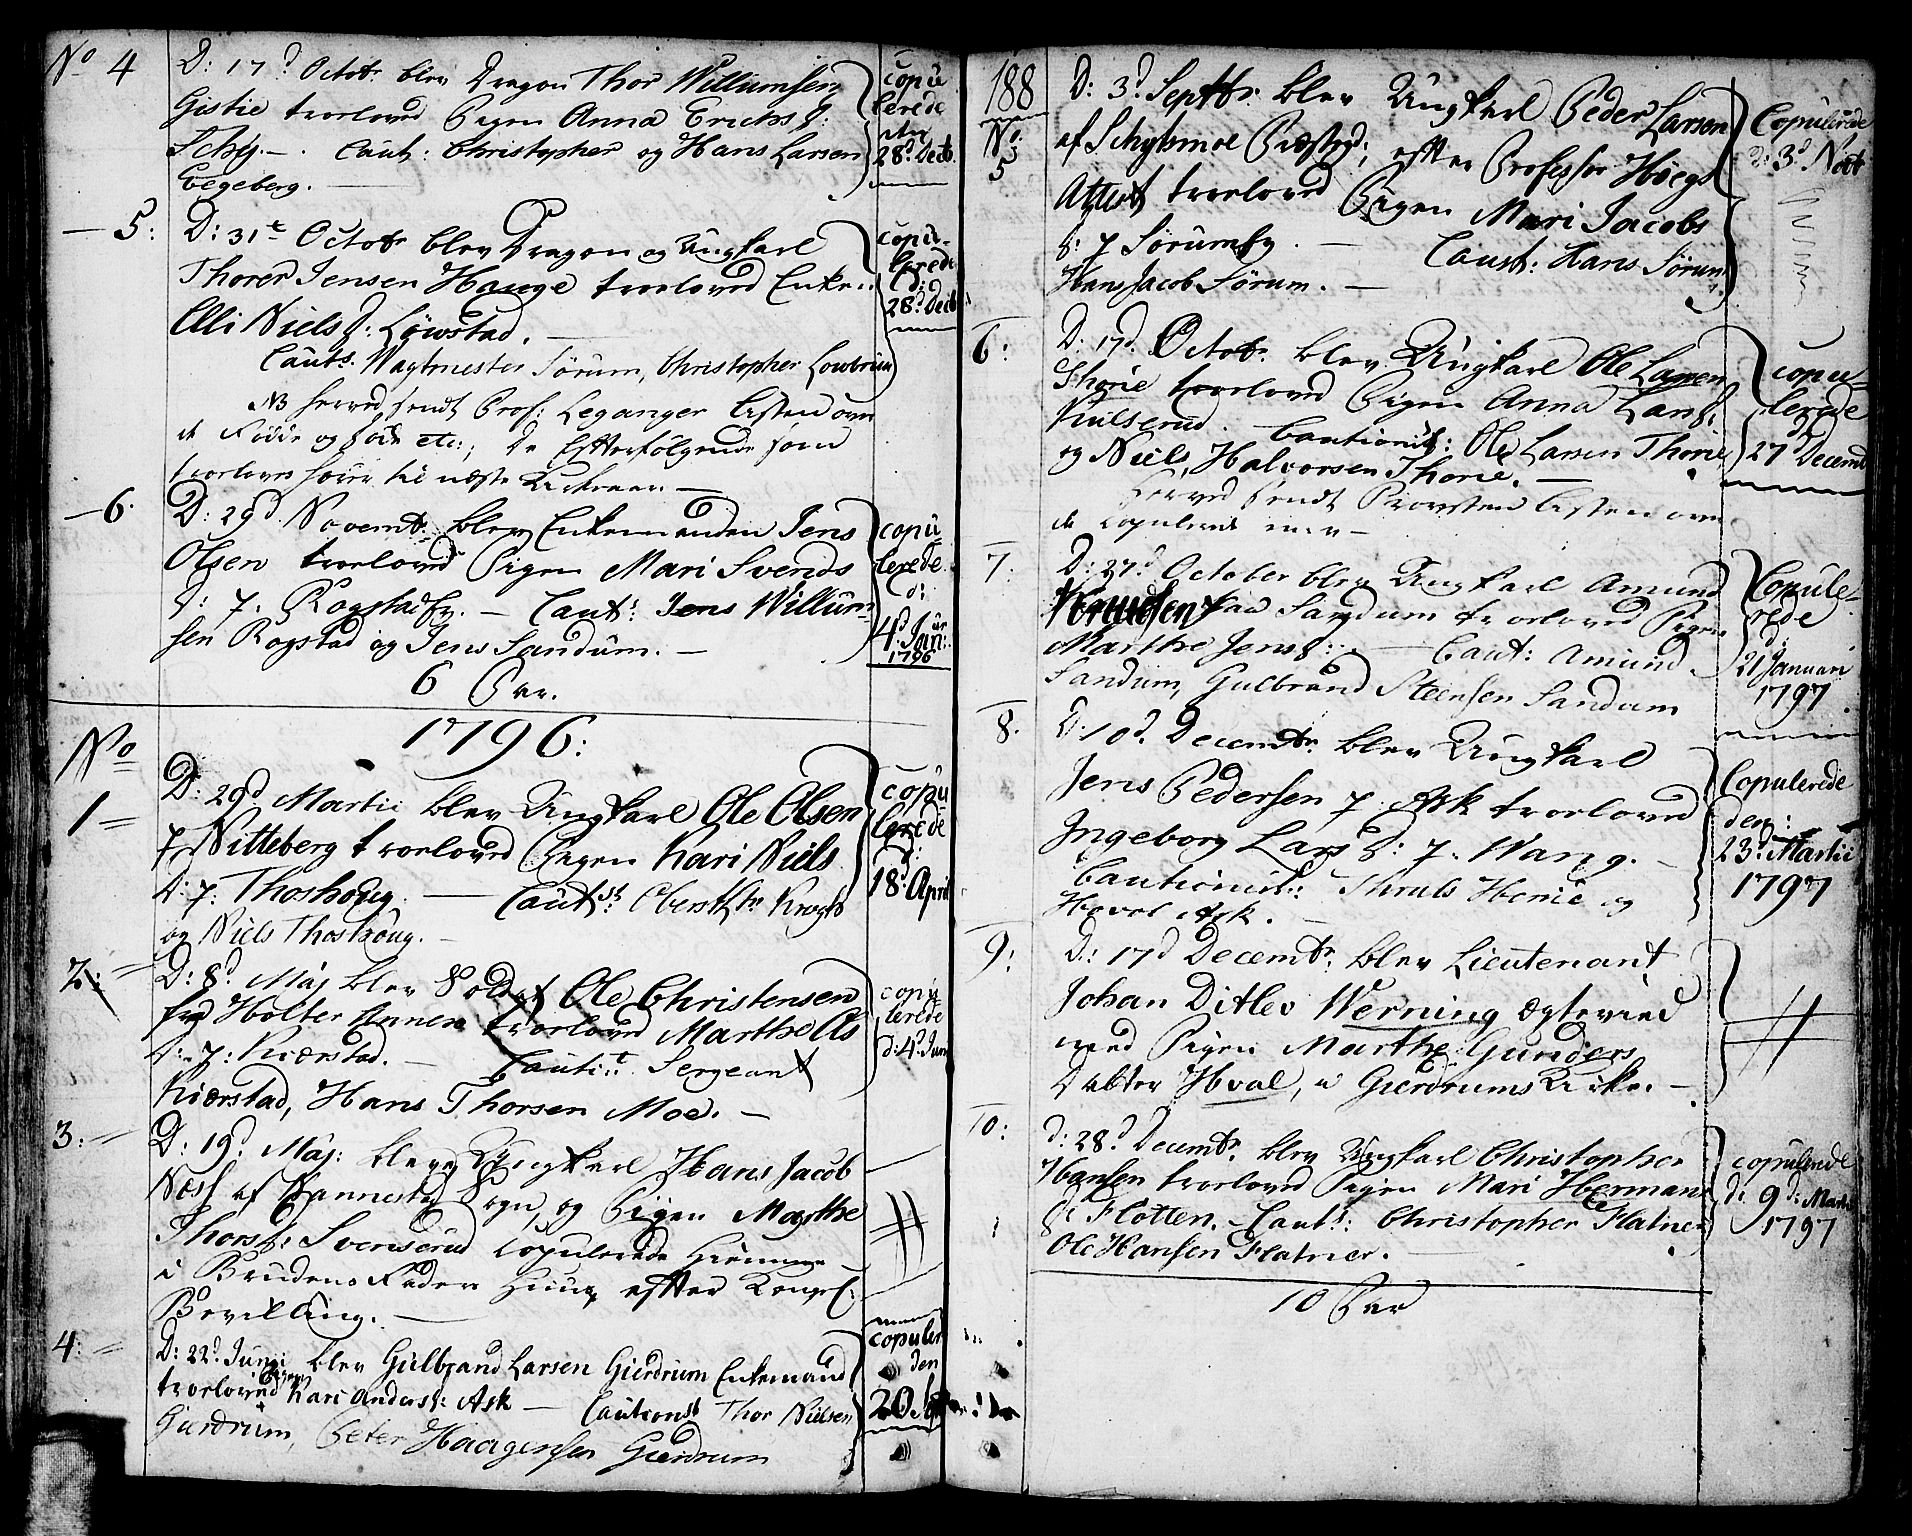 No 4
D: 17d Octobr blev Dragon Thor Willumsen
Gistie trorloved Pigen Anna Erichs D:
Schÿ. — Caut: Christopher og Hans Larsen
Eegeberg. —
copu
lerede
28d Decb.
— 5:
D: 31te Octobr blev Dragon og Ungkarl
Thorer Jensen Hauge trorloved Enken
Elli Niels D: Löwstad. —
Caut: Wagtmester Sörum, Christopher Lowbrun
copu-
lerede
d:
28d Decb
NB herved sendt Prof: Leganger Listen over
de Födde og döde etc:, De Efterfölgende som
trorloves hörer til næste Kirkeaar. —
— 6.
D: 29d Novembr blev Enkemanden Jens
Olsen trorloved Pigen Mari Svends
D: 7. Rogstadey. — Caut: Jens Willum-
sen Rogstad og Jens Sandum. —
copu
lerede.
d:
4d Jan:
1796
6 Par.
1796:
No
1 =
D: 29d Martii blev Ungkarl Ole Olsen
fr Nitteberg trorloved Pigen Kari Niels
D: 7: Thoshoug. — Caut: Oberstltr Krogh
og Niels Thoshoug. —
copu
lerede
d:
18d April
2: =
D: 8d Maj blev Soldat Ole Christensen
Holter Annex trorloved Marthe As
D: 7: Kiærstad. — Caut: Sergeant
Kiærstad, Hans Thorsen Moe. —
copu-
lerede
d: 4d Jun
3: =
D: 19d Maj: bleve Ungkarl Hans Jacob
Næss af Nannestad Sogn, og Pigen Marthe
Thorsd: Svenserud copulerede hiemme
i Brudens Faders Huus efter Kongel:
Bevilling. —
4: =
D: 22d Junii blev Gulbrand Larsen Gierdrum Enkemand
trorloved Pigen Kari Andersd: Ask — Cautionst Thor Nielsen
Gierdrum, Peter Haagensen Gierdrum
copuler
den
20
188
No
5
D: 3d Septbr blev Ungkarl Peder Larsen
af Schydsmoe Præsteg:, efter Professor Höegs
Attest trorloved Pigen Mari Jacobs
D: 7 Sörumey. — Caut: Hans Sörum
Hans Jacob Sörum. —
Copulerede
d: 3d Novb
6:
D. 17d Octobr. blev Ungkarl Ole Larsen
Thorie trorloved Pigen Anna Larsd:
Kulserud. Cautionist: Ole Larsen Thorie
og Niels Halvorsen Thorie. —
copu-
lerede
27d Decemb
Herved sendt Provsten Listen over
de Copulerede m.v —
7:
D: 27d October blev Ungkarl Amund
Knudsen paa Sandum trorloved Pigen
Marthe Jensd: — Caut: Amund
Sandum, Gulbrand Steensen Sandum
Copule-
rede
d
21d Januari
1797
8.
D. 10d. Decembr. blev Ungkarl
Jens Pedersen 7. Ask trorloved
Ingeborg Lars D: 7. Wang. —
Cautionist: Thruls Henie og
Hovel Ask. —
Copulerede
den:
23d Martii
1797
9:
D: 17d Decembr: blev Lieutenant
Johan Ditlev Werning ægteviet
med Pigen Marthe Gunders
Datter Hval, i Gierdrums Kirke. —
10:
d: 28d Decembr. blev Ungkarl Christopher
Hansen trorloved Pigen Mari Hermans
D: Flotten. — Caut: Christopher Flatner
Ole Hansen Flatner.
copulerede
d: 9d: Marti
1797
10 Par